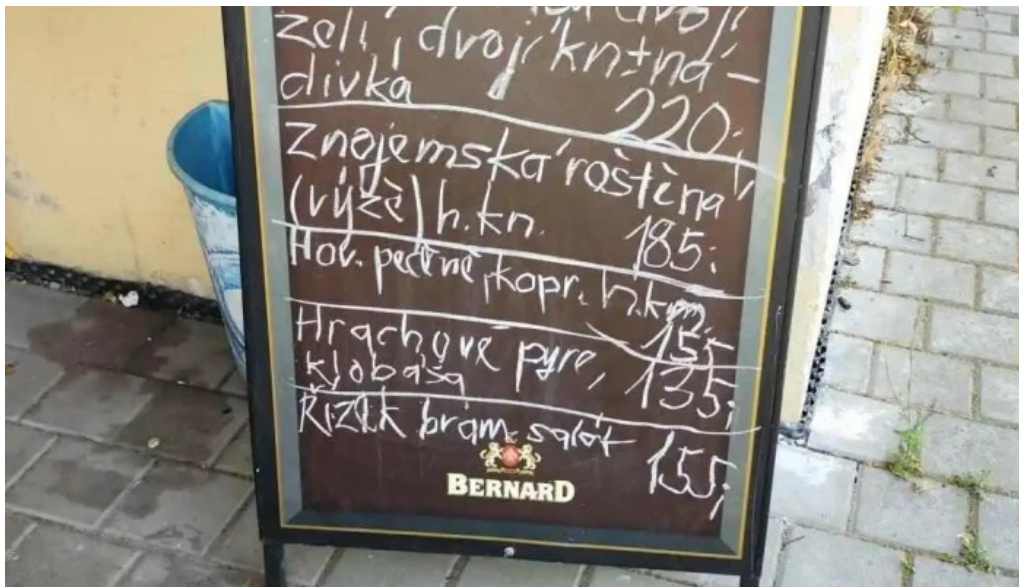 dvojí
zelí, dvojí kn+ná-
divka 220,-
Znojemská roštěna
(výžě) h.kn. 185,-
Hov. pečeně, kopr. h.kn.
Hrachové pyré, 135,-
klobása
Řízek bram. salát
155,-
BERNARD